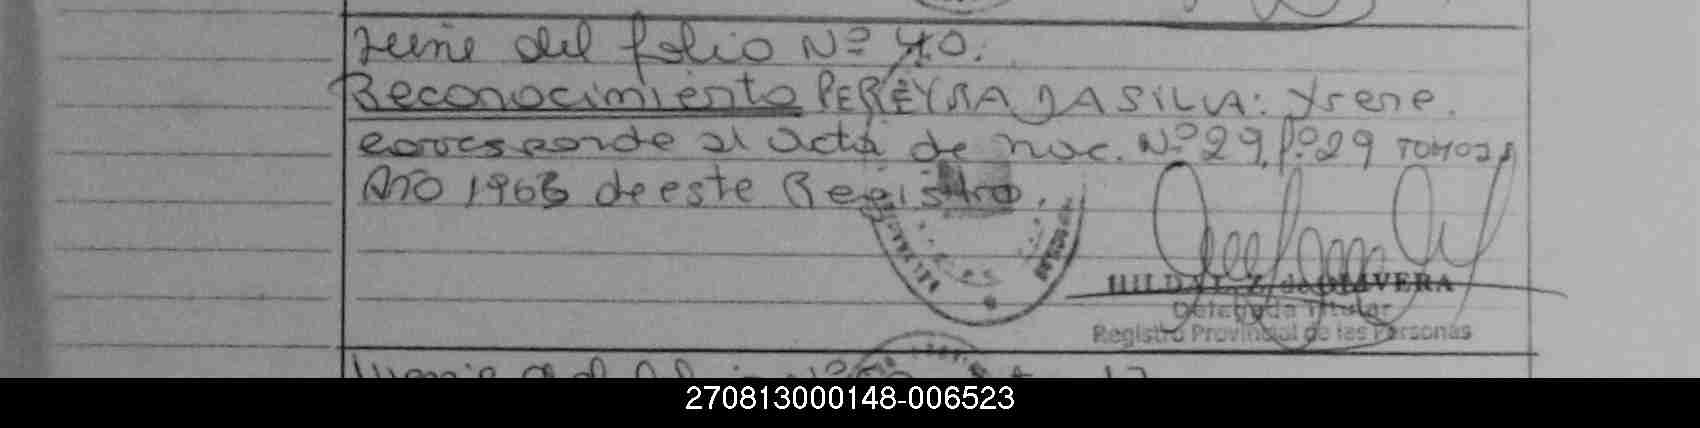 viene del folio Nº 40.
Reconocimiento PEREYRA DA SILVA: Yrene.
corresponde al acta de nac. Nº 29. Fº 29 TOMO
Año 1963 de este Registro.
HILDA L. Z. de OLIVERA
Delegada Titular
Registro Provincial de las Personas
270813000148-006523